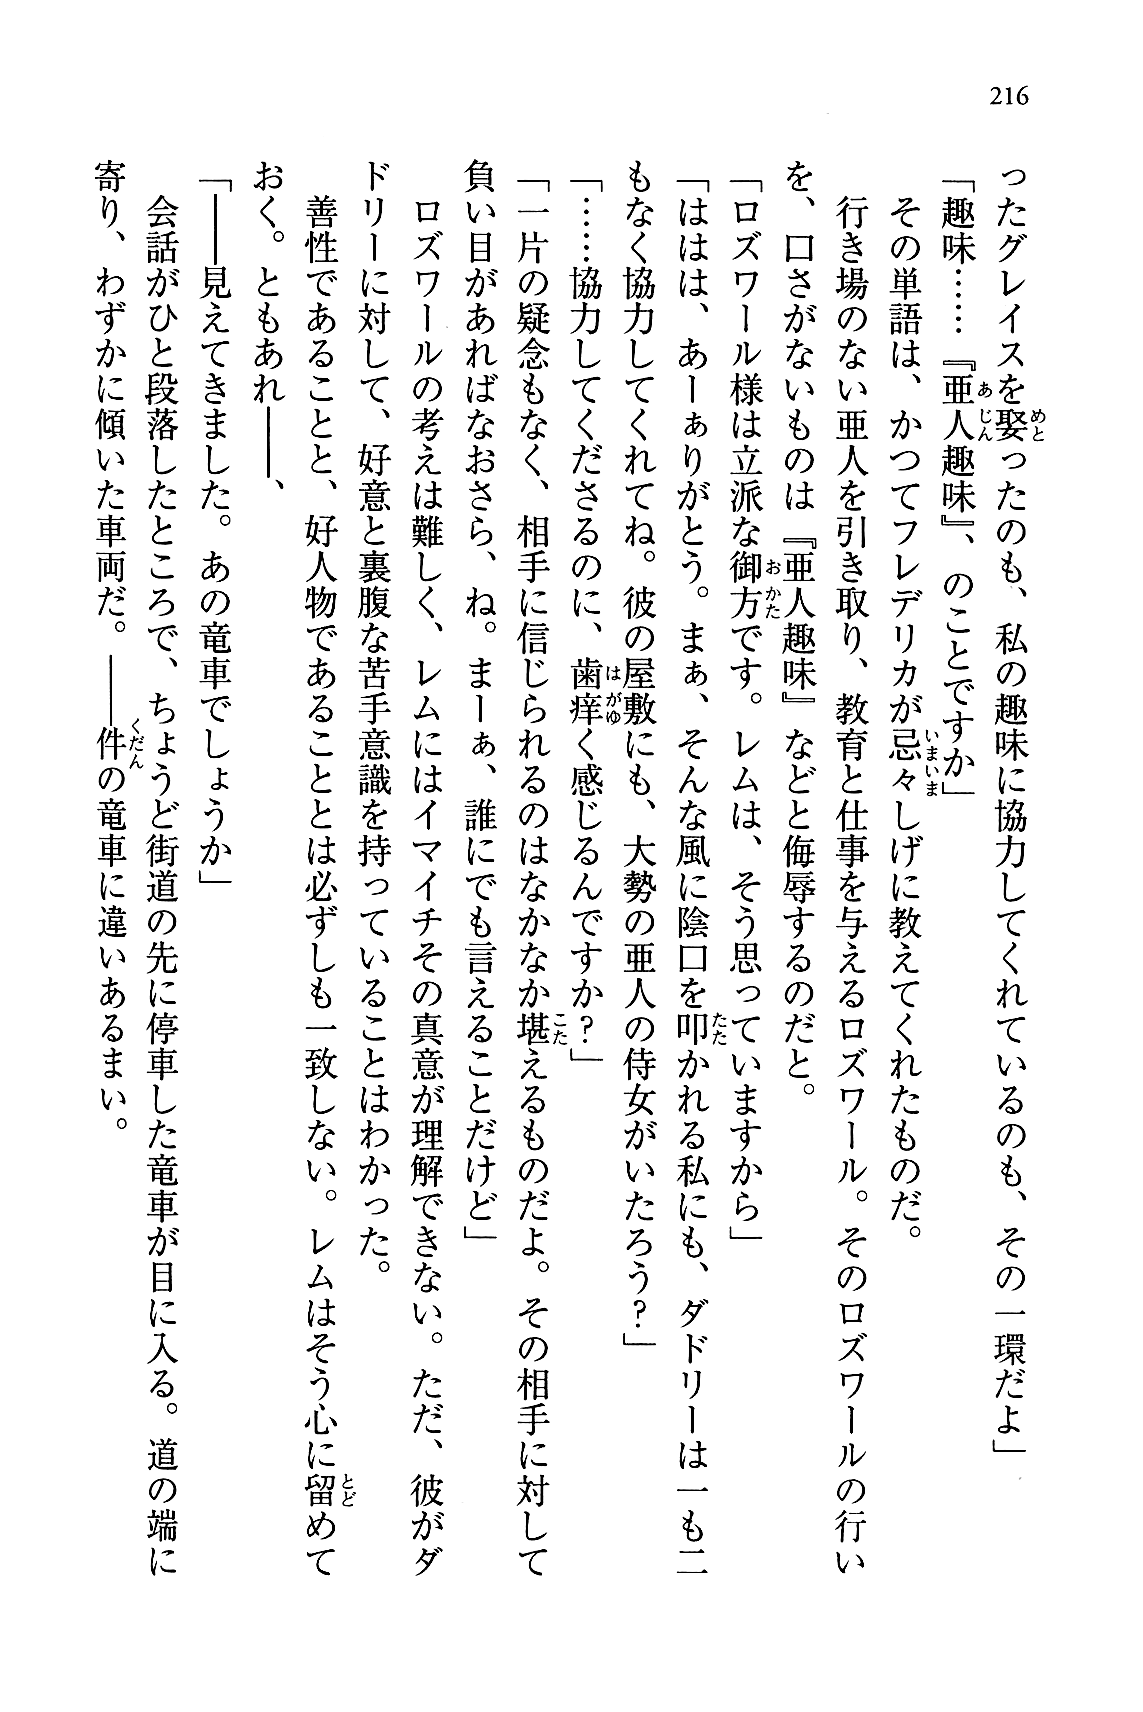 216
ったグレイスを娶ったのも、私の趣味に協力してくれているのも、その一環だよ」
「趣味……『亜人趣味』、のことですか」
その単語は、かつてフレデリカが忌々しげに教えてくれたものだ。
行き場のない亜人を引き取り、教育と仕事を与えるロズワール。そのロズワールの行い
を、口さがないものは『亜人趣味』などと侮辱するのだと。
「ロズワール様は立派な御方です。レムは、そう思っていますから」
「ははは、あーぁりがとう。まぁ、そんな風に陰口を叩かれる私にも、ダドリーは一も二
もなく協力してくれてね。彼の屋敷にも、大勢の亜人の侍女がいたろう？」
「……協力してくださるのに、歯痒く感じるんですか？」
「一片の疑念もなく、相手に信じられるのはなかなか堪えるものだよ。その相手に対して
負い目があればなおさら、ね。まーぁ、誰にでも言えることだけど」
ロズワールの考えは難しく、レムにはイマイチその真意が理解できない。ただ、彼がダ
ドリーに対して、好意と裏腹な苦手意識を持っていることはわかった。
善性であることと、好人物であることとは必ずしも一致しない。レムはそう心に留めて
おく。ともあれ――、
「――見えてきました。あの竜車でしょうか」
会話がひと段落したところで、ちょうど街道の先に停車した竜車が目に入る。道の端に
寄り、わずかに傾いた車両だ。――件の竜車に違いあるまい。